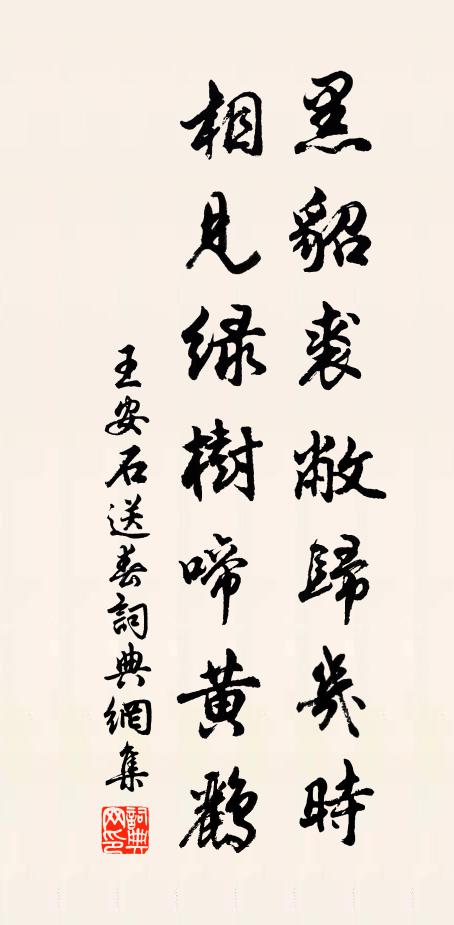 黑貂裘敝歸幾時
相見綠樹啼黃鸝
王安石送春詞典網集
詞典網印